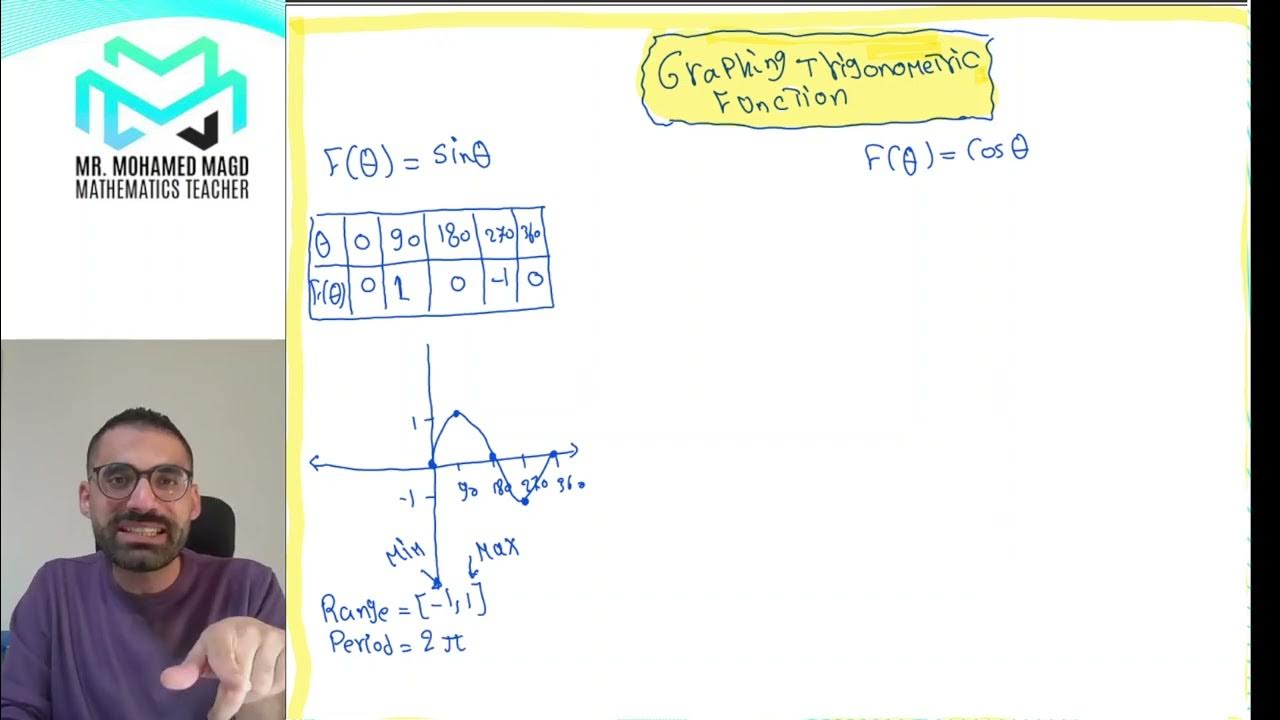 MR. MOHAMED MAGD
MATHEMATICS TEACHER
Graphing Trigonometric
Function
F(θ) = sinθ
θ 0 90 180 270 360
F(θ) 0 1 0 -1 0
1
-1
90 180 270 360
Min Max
Range = [-1,1]
Period = 2π
F(θ) = Cosθ